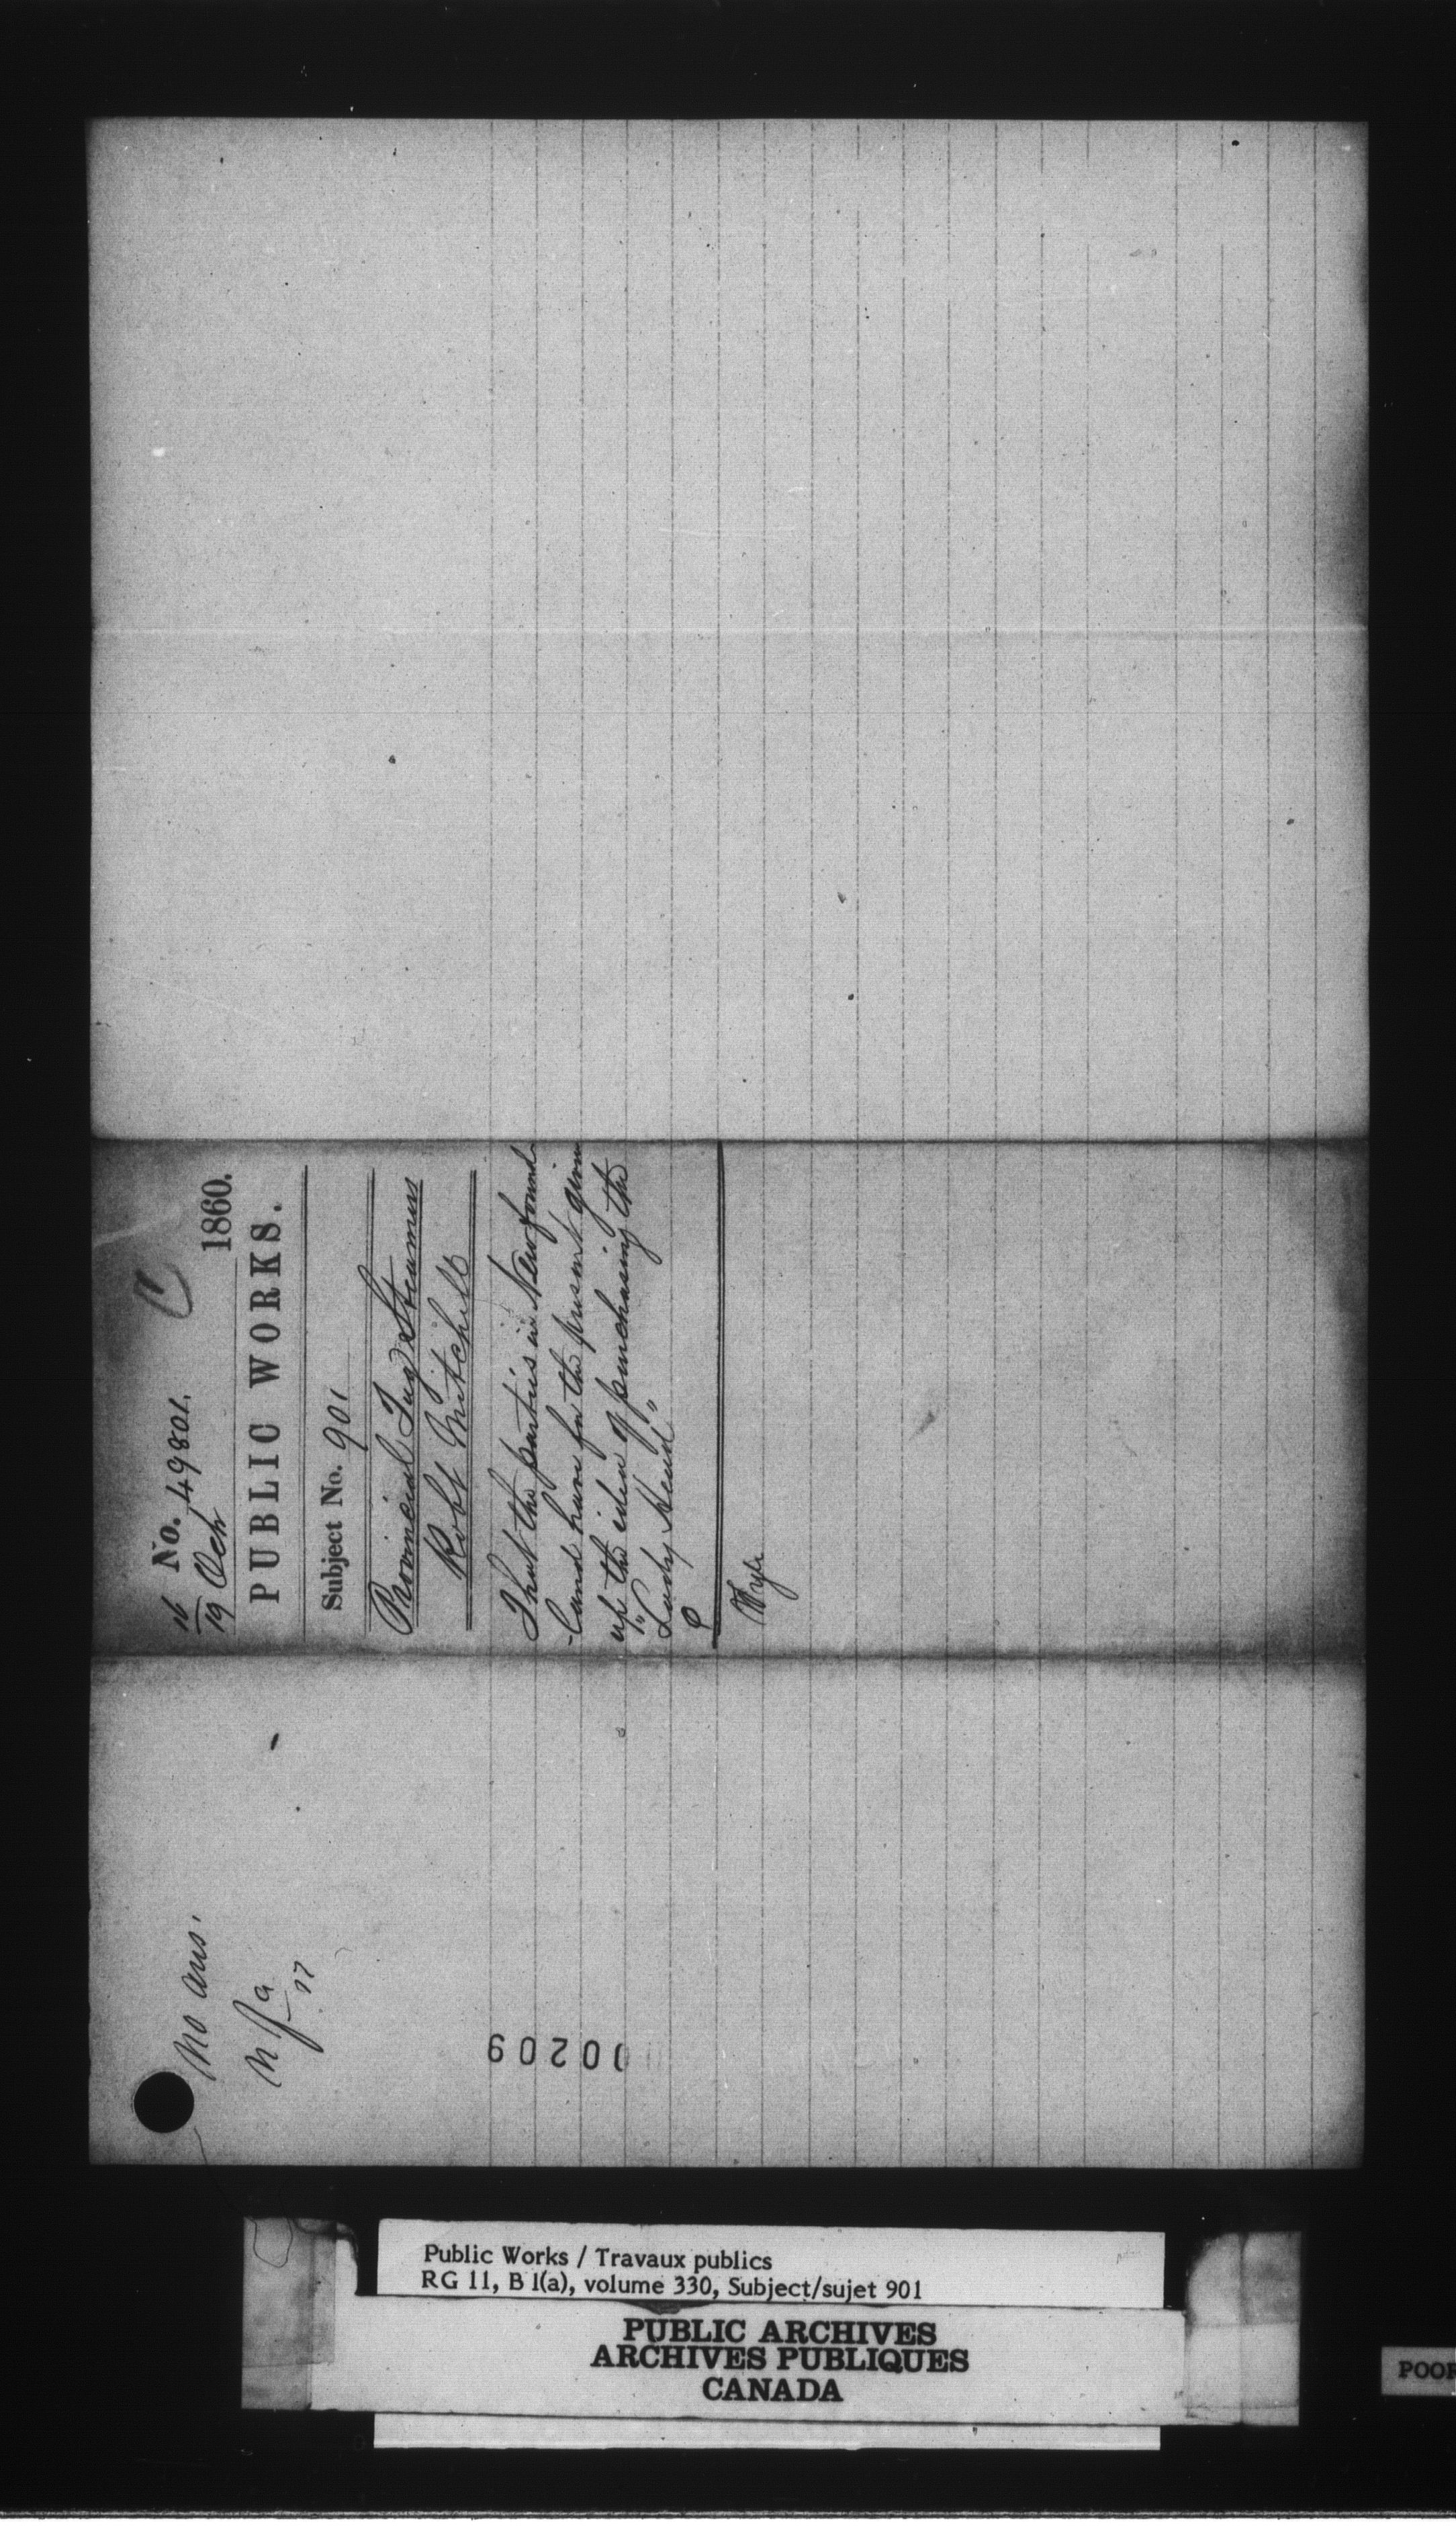 C
No. 49801.
16
19 Octr 1860.
PUBLIC WORKS.
Subject No. 901
Provincial Tug Steamers
Robt Mitchell
That the parties in Newfound
-land have for the present given
up the idea of purchasing the
"Lady Head"
No ans.
n f a
00209
Public Works / Travaux publics
RG 11, B 1(a), volume 330, Subject/sujet 901
PUBLIC ARCHIVES
ARCHIVES PUBLIQUES
CANADA
POOR